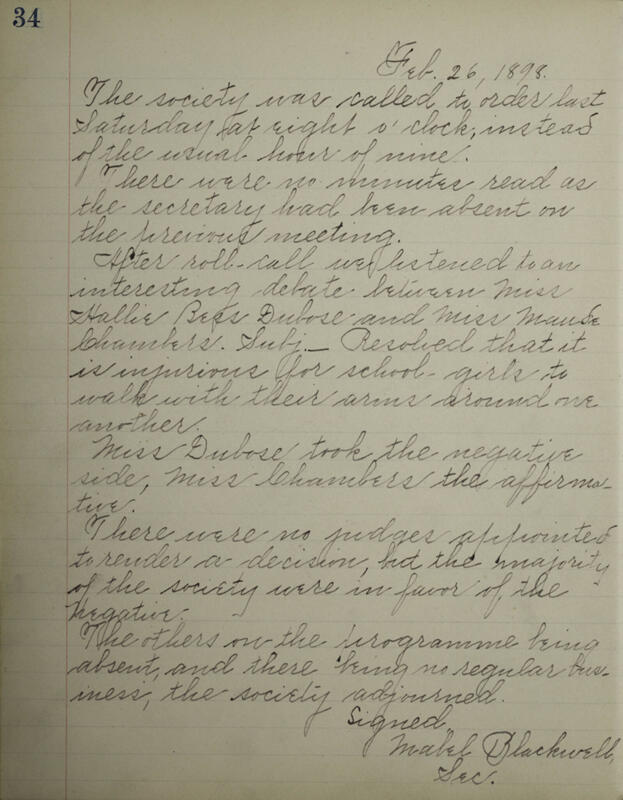 34
Feb. 26, 1898.
The society was called to order last
Saturday at eight o'clock, instead
of the usual hour of nine.
There were no minutes read as
the secretary had been absent on
the previous meeting.
After roll-call we listened to an
interesting debate between Miss
Hallie Bess Dubose and Miss Maude
Chambers. Subj._ Resolved that it
is injurious for school-girls to
walk with their arms around one
another.
Miss Dubose took the negative
side, Miss Chambers the affirma-
tive.
There were no judges appointed
to render a decision, but the majority
of the society were in favor of the
negative.
The others on the programme being
absent, and there being no regular bus-
iness, the society adjourned.
Signed,
Mabel Blackwell,
Sec.